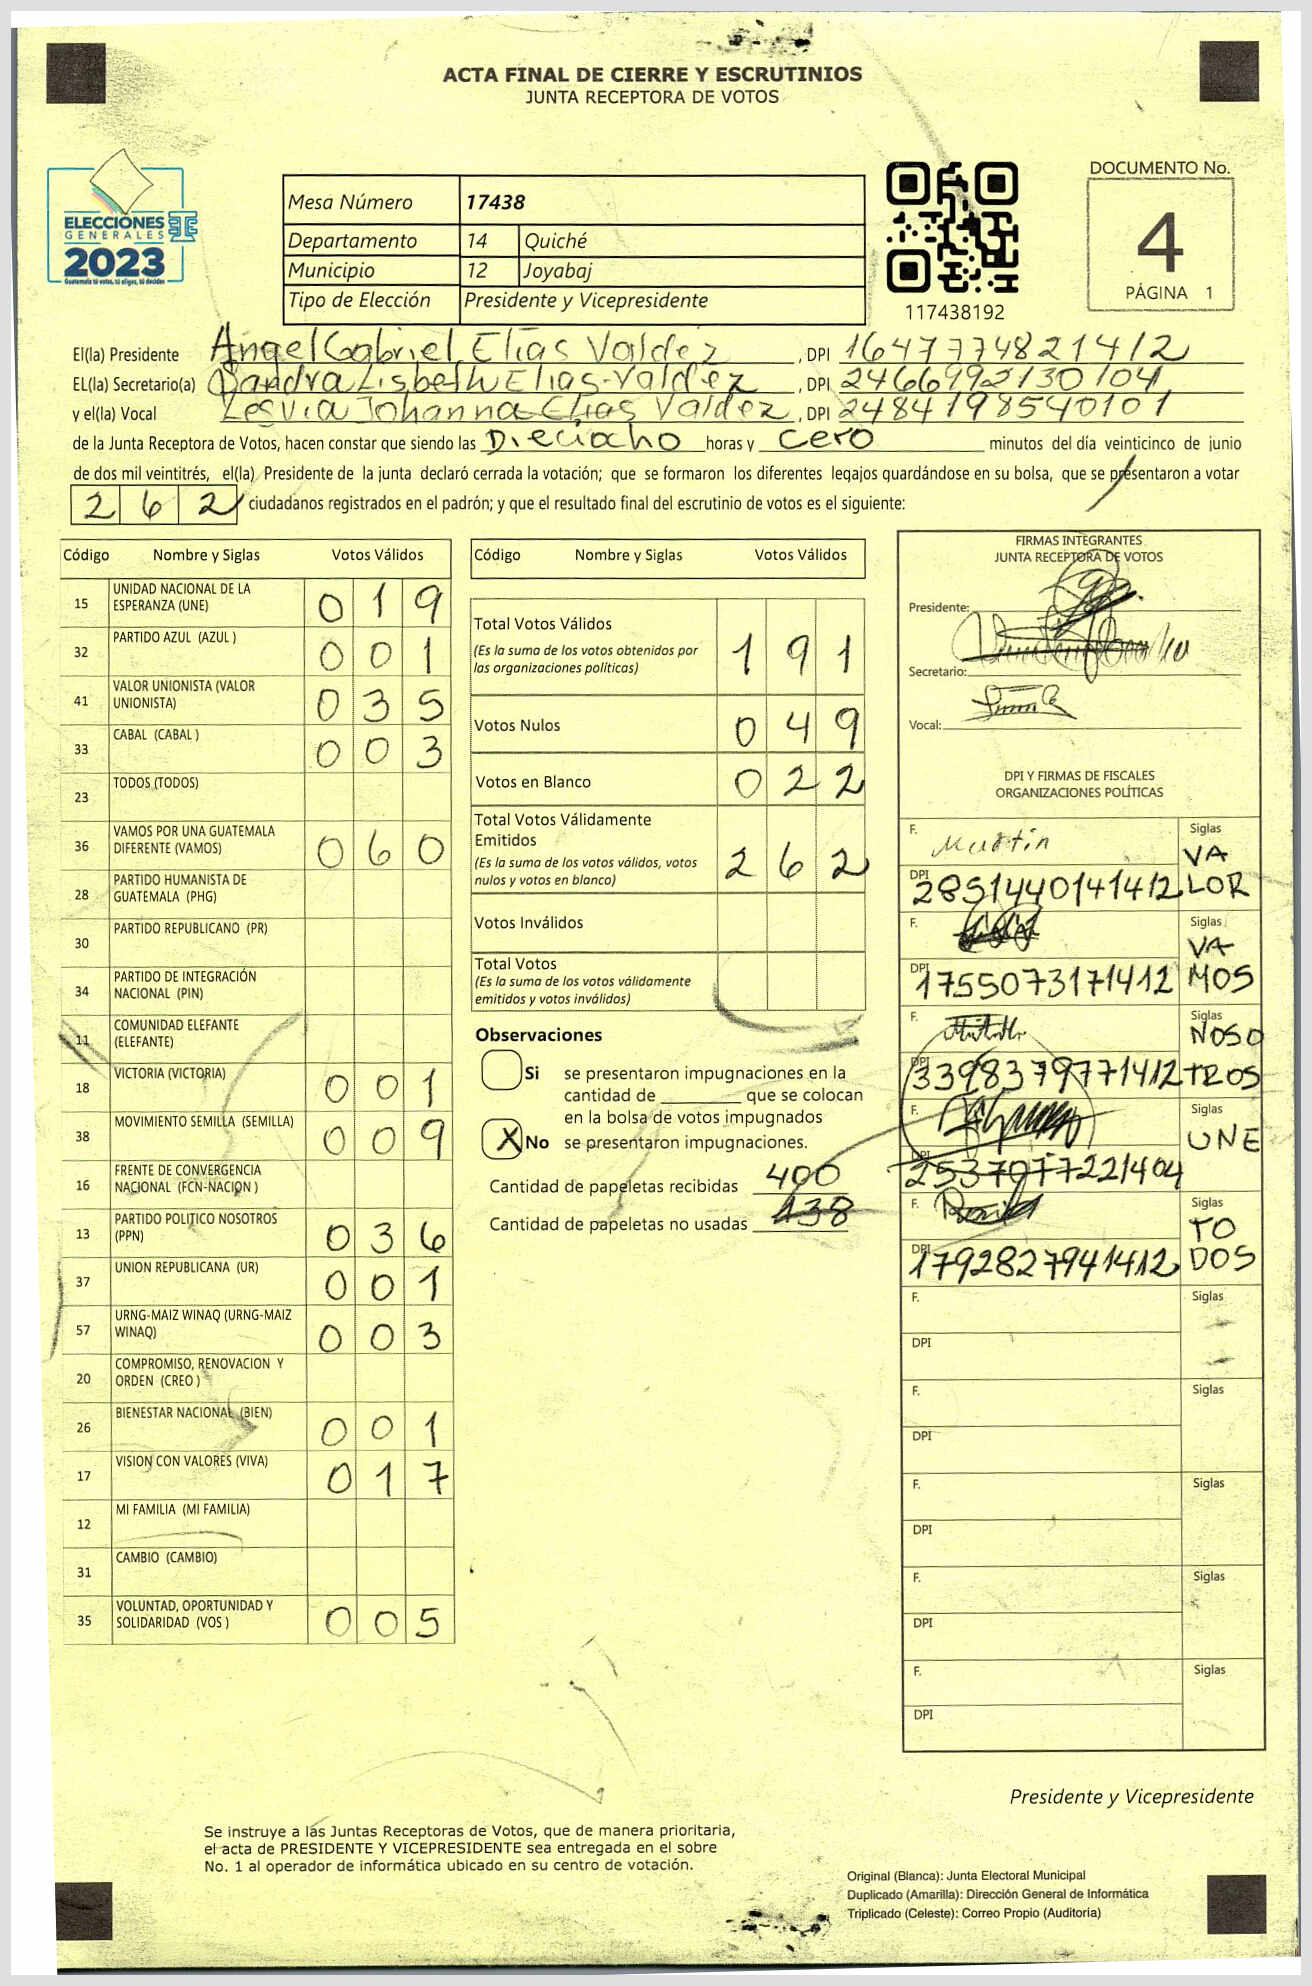 ACTA FINAL DE CIERRE Y ESCRUTINIOS
JUNTA RECEPTORA DE VOTOS
ELECCIONES
GENERALES
2023
Guatemala tú votas, tú eliges, tú decides
Mesa Número 17438
Departamento 14 Quiché
Municipio 12 Joyabaj
Tipo de Elección Presidente y Vicepresidente
117438192
DOCUMENTO No.
4
PÁGINA 1
El(la) Presidente Angel Gabriel Elías Valdez, DPI 1647774821412
EL(la) Secretario(a) Sandra Lisbeth Elias Valdez, DPI 2466992130104
y el(la) Vocal Lesvia Johanna Elías Valdez, DPI 2484198540101
de la Junta Receptora de Votos, hacen constar que siendo las Dieciocho horas y cero minutos del día veinticinco de junio
de dos mil veintitrés, el(la) Presidente de la junta declaró cerrada la votación; que se formaron los diferentes legajos guardándose en su bolsa, que se presentaron a votar
262 ciudadanos registrados en el padrón; y que el resultado final del escrutinio de votos es el siguiente:
Código Nombre y Siglas Votos Válidos
15 UNIDAD NACIONAL DE LA ESPERANZA (UNE) 019
32 PARTIDO AZUL (AZUL ) 001
41 VALOR UNIONISTA (VALOR UNIONISTA) 035
33 CABAL (CABAL ) 003
23 TODOS (TODOS)
36 VAMOS POR UNA GUATEMALA DIFERENTE (VAMOS) 060
28 PARTIDO HUMANISTA DE GUATEMALA (PHG)
30 PARTIDO REPUBLICANO (PR)
34 PARTIDO DE INTEGRACIÓN NACIONAL (PIN)
11 COMUNIDAD ELEFANTE (ELEFANTE)
18 VICTORIA (VICTORIA) 001
38 MOVIMIENTO SEMILLA (SEMILLA) 009
16 FRENTE DE CONVERGENCIA NACIONAL (FCN-NACION )
13 PARTIDO POLITICO NOSOTROS (PPN) 036
37 UNION REPUBLICANA (UR) 001
57 URNG-MAIZ WINAQ (URNG-MAIZ WINAQ) 003
20 COMPROMISO, RENOVACION Y ORDEN (CREO )
26 BIENESTAR NACIONAL (BIEN) 001
17 VISION CON VALORES (VIVA) 017
12 MI FAMILIA (MI FAMILIA)
31 CAMBIO (CAMBIO)
35 VOLUNTAD, OPORTUNIDAD Y SOLIDARIDAD (VOS ) 005
Código Nombre y Siglas Votos Válidos
Total Votos Válidos 191
(Es la suma de los votos obtenidos por
las organizaciones políticas)
Votos Nulos 049
Votos en Blanco 022
Total Votos Válidamente
Emitidos 262
(Es la suma de los votos válidos, votos
nulos y votos en blanco)
Votos Inválidos
Total Votos
(Es la suma de los votos válidamente
emitidos y votos inválidos)
Observaciones
Si se presentaron impugnaciones en la
cantidad de ________ que se colocan
en la bolsa de votos impugnados
X No se presentaron impugnaciones.
Cantidad de papeletas recibidas 400
Cantidad de papeletas no usadas 138
FIRMAS INTEGRANTES
JUNTA RECEPTORA DE VOTOS
Presidente:
Secretario:
Vocal:
DPI Y FIRMAS DE FISCALES
ORGANIZACIONES POLÍTICAS
F. Martín Siglas VALOR
DPI 2851440141412
F. Siglas VAMOS
DPI 1755073171412
F. Siglas NOSOTROS
DPI 3398379771412
F. Siglas UNE
DPI 2537077221404
F. Siglas TODOS
DPI 1792827941412
F. Siglas
DPI
F. Siglas
DPI
F. Siglas
DPI
F. Siglas
DPI
F. Siglas
DPI
Presidente y Vicepresidente
Se instruye a las Juntas Receptoras de Votos, que de manera prioritaria,
el acta de PRESIDENTE Y VICEPRESIDENTE sea entregada en el sobre
No. 1 al operador de informática ubicado en su centro de votación.
Original (Blanca): Junta Electoral Municipal
Duplicado (Amarilla): Dirección General de Informática
Triplicado (Celeste): Correo Propio (Auditoría)